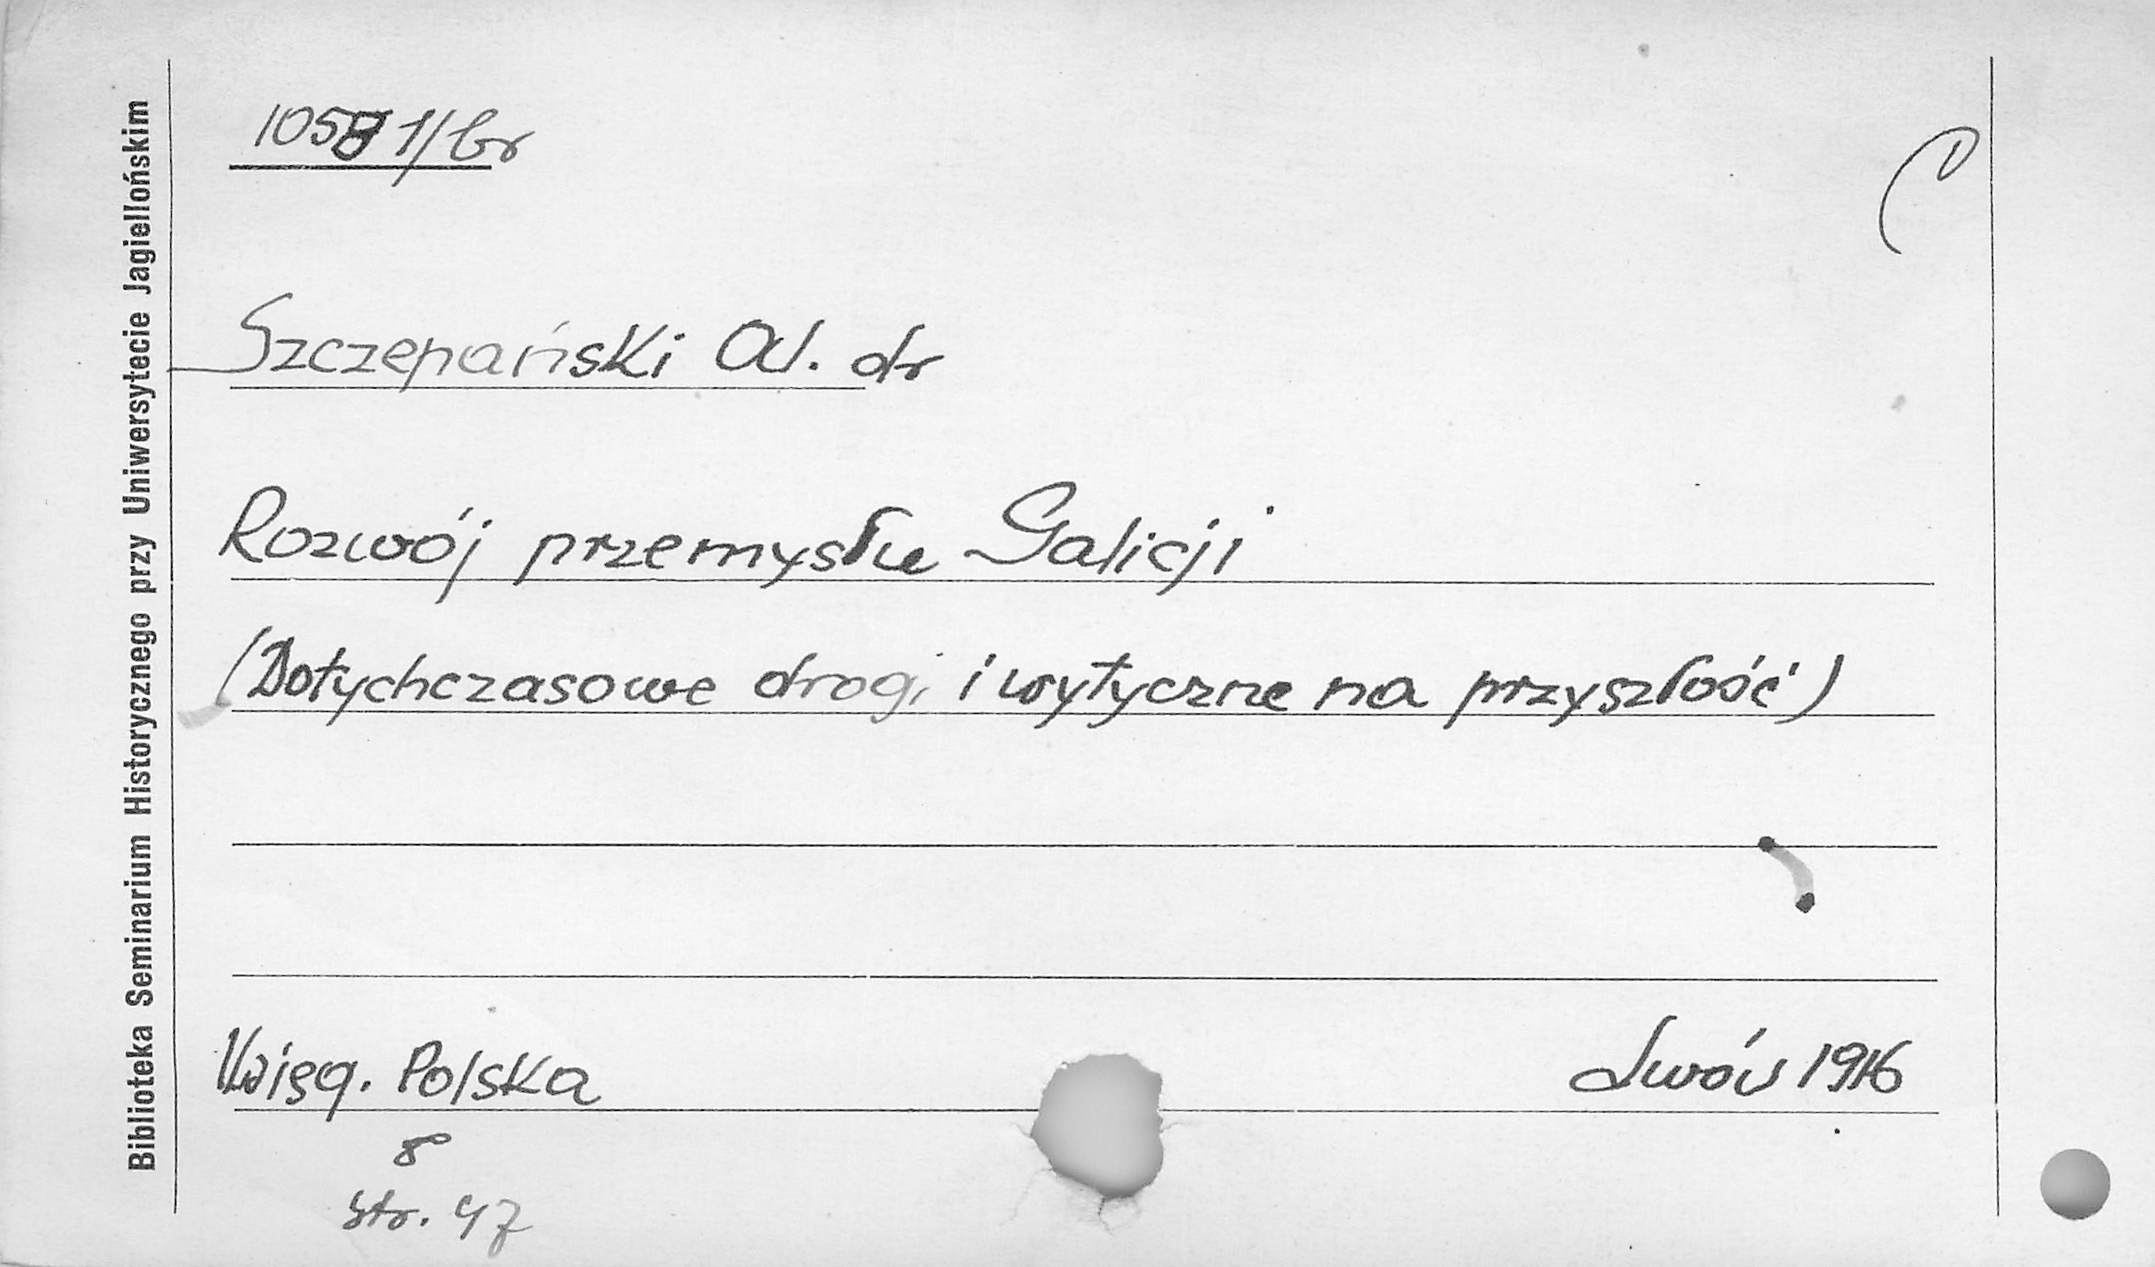 10581/br
Szczepański Al. dr
Rozwój przemysłu Galicji
(Dotychczasowe drogi i wytyczne na przyszłość)
Księg. Polska
Lwów 1916
8°
str. 47
Biblioteka Seminarium Historycznego przy Uniwersytecie Jagiellońskim